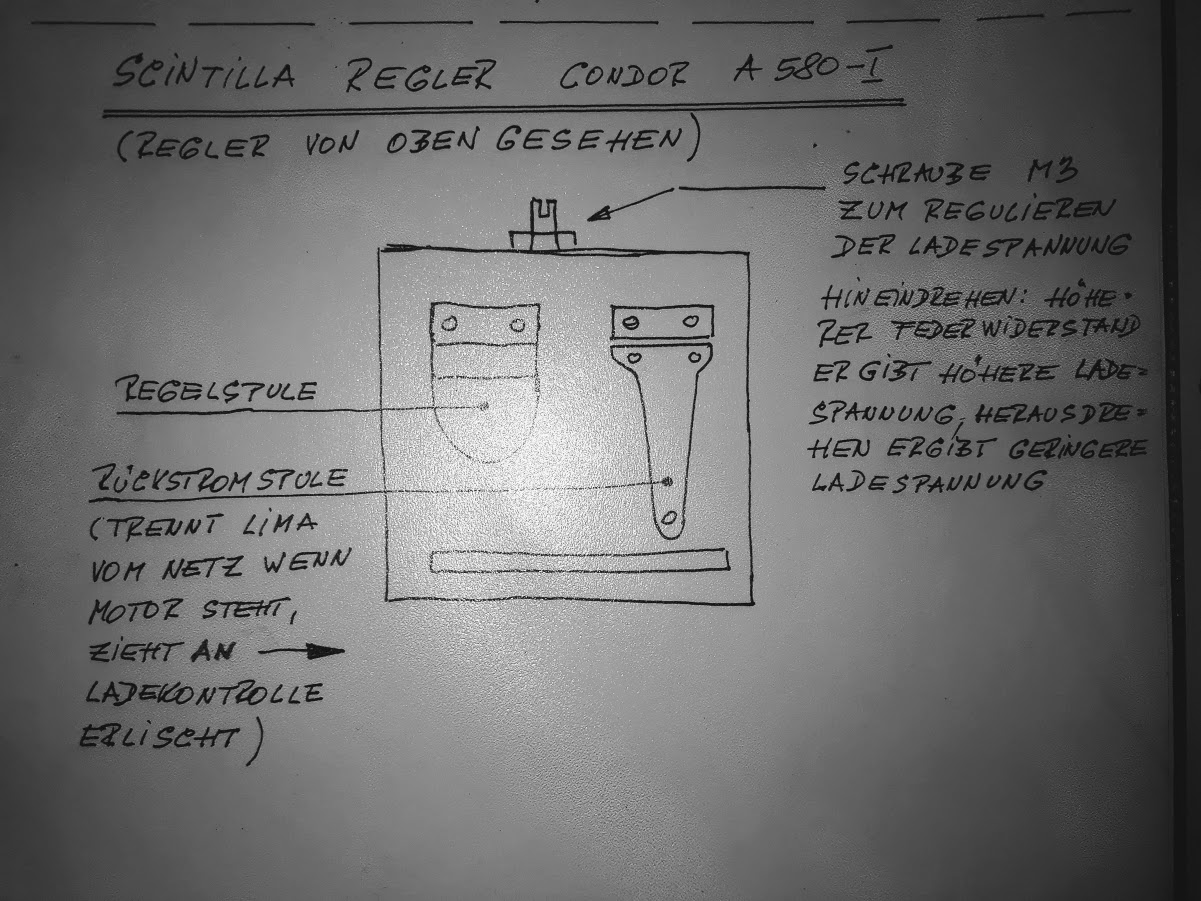 SCINTILLA REGLER CONDOR A 580-I
(REGLER VON OBEN GESEHEN)
SCHRAUBE M3
ZUM REGULIEREN
DER LADESPANNUNG
HINEINDREHEN: HÖHE-
RER FEDERWIDERSTAND
ERGIBT HÖHERE LADE=
SPANNUNG, HERAUSDRE=
HEN ERGIBT GERINGERE
LADESPANNUNG
REGELSPULE
RÜCKSTROMSPULE
(TRENNT LIMA
VOM NETZ WENN
MOTOR STEHT,
ZIEHT AN →
LADEKONTROLLE
ERLISCHT)